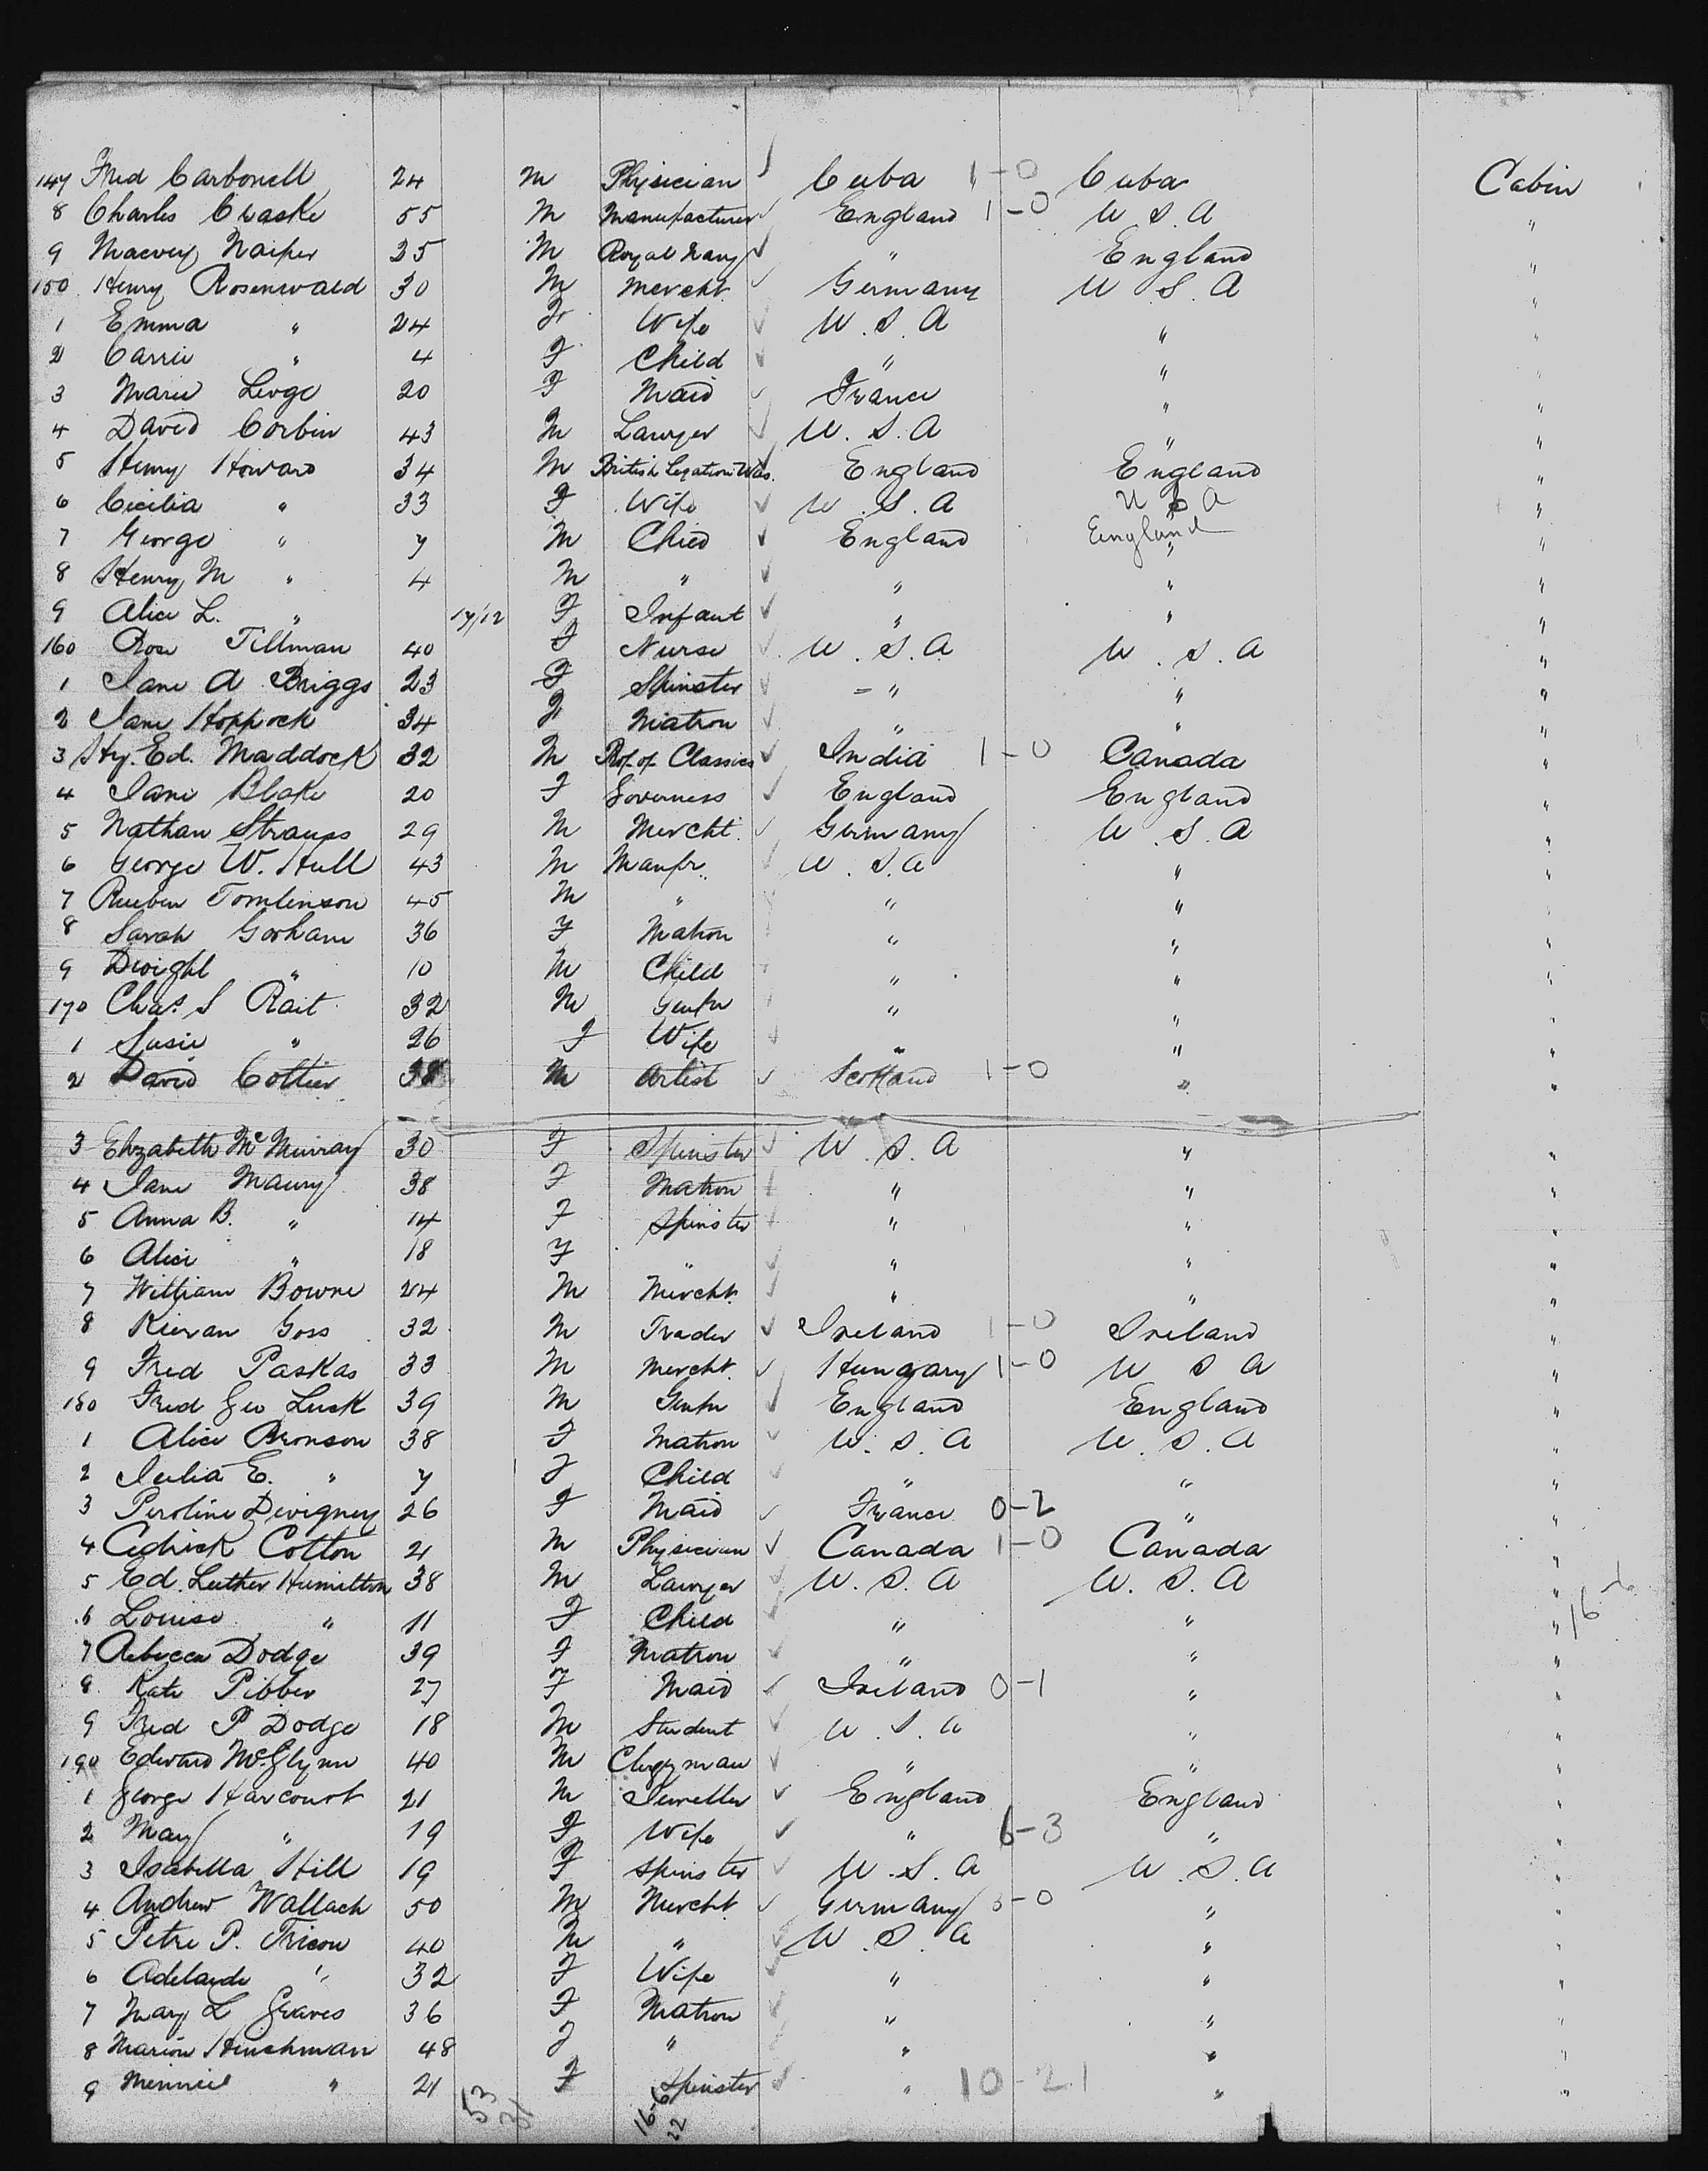 147 Fred Carbonell 24 M Physician Cuba 1-0 Cuba Cabin
8 Charles Chaske 55 M Manufacturer England 1-0 U S A "
9 Macvey Naiper 35 M Royal Navy " England "
150 Henry Rosenwald 30 M Mercht. Germany U S A "
1 Emma " 24 F Wife U.S.A " "
2 Carrie " 4 F Child " " "
3 Marie 20 F Maid France " "
4 David Corbin 43 M Lawyer U.S.A " "
5 Henry Howard 34 M British Legation Was. England England "
6 Cicilia " 33 F Wife U.S.A U S A "
7 George " 7 M Child England England " "
8 Henry M " 4 M " " " "
9 Alice L. " F Infant " " "
160 Rose Tillman 40 F Nurse U.S.A. U.S.A "
1 Jane A Briggs 23 F Spinster " " "
2 Jane Hoppock 34 F Matron " " "
3 Hy. Ed. Maddock 32 M Prof. of Classics India 1-0 Canada "
4 Jane Blake 20 F Governess England England "
5 Nathan Strauss 29 M Mercht. Germany U.S.A "
6 George W. Hull 43 M Manfr. U.S.A " "
7 Reuben Tomlinson 45 M " " " "
8 Sarah Gorham 36 F Matron " " "
9 Dwight " 10 M Child " " "
170 Chas. S Rait 32 M Gentn " " "
1 Susie " 26 F Wife " " "
2 David Cottier 38 M Artist Scotland 1-0 " "
3 Elizabeth McMurray 30 F Spinster U.S.A " "
4 Jane Maury 38 F Matron " " "
5 Anna B. " 14 F Spinster " " "
6 Alice " 18 F " " " "
7 William Bowne 24 M Mercht. " " "
8 Kieran Goss 32 M Trader Ireland 1-0 Ireland "
9 Fred Paskas 33 M Mercht. Hungary 1-0 U S A "
180 Fred Geo Luck 39 M Gentn England England "
1 Alice Bronson 38 F Matron U.S.A U.S.A "
2 Julia E. " 7 F Child " " "
3 Peroline Devigney 26 F Maid France 0-2 " "
4 Cedrick Cotton 21 M Physician Canada 1-0 Canada "
5 Ed. Luther Hamilton 38 M Lawyer U.S.A U.S.A "
6 Louise " 11 F Child " " " 16
7 Rebecca Dodge 39 F Matron " " "
8 Kate Pibber 27 F Maid Ireland 0-1 " "
9 Fred P Dodge 18 M Student U.S.A " "
190 Edward McGlynn 40 M Clergyman " " "
1 George Harcourt 21 M Jeweller England England "
2 May " 19 F Wife " 6-3 " "
3 Isabella Hill 19 F Spinster U.S.A U.S.A "
4 Andrew Wallach 50 M Mercht Germany 3-0 " "
5 Petre P. Tricou 40 M " U.S.A " "
6 Adelaide " 32 F Wife " " "
7 Mary L Graves 36 F Matron " " "
8 Marion Hinchman 48 F " " " "
9 Minnie " 21 F Spinster " 10-21 " "
53 31 16-6
22